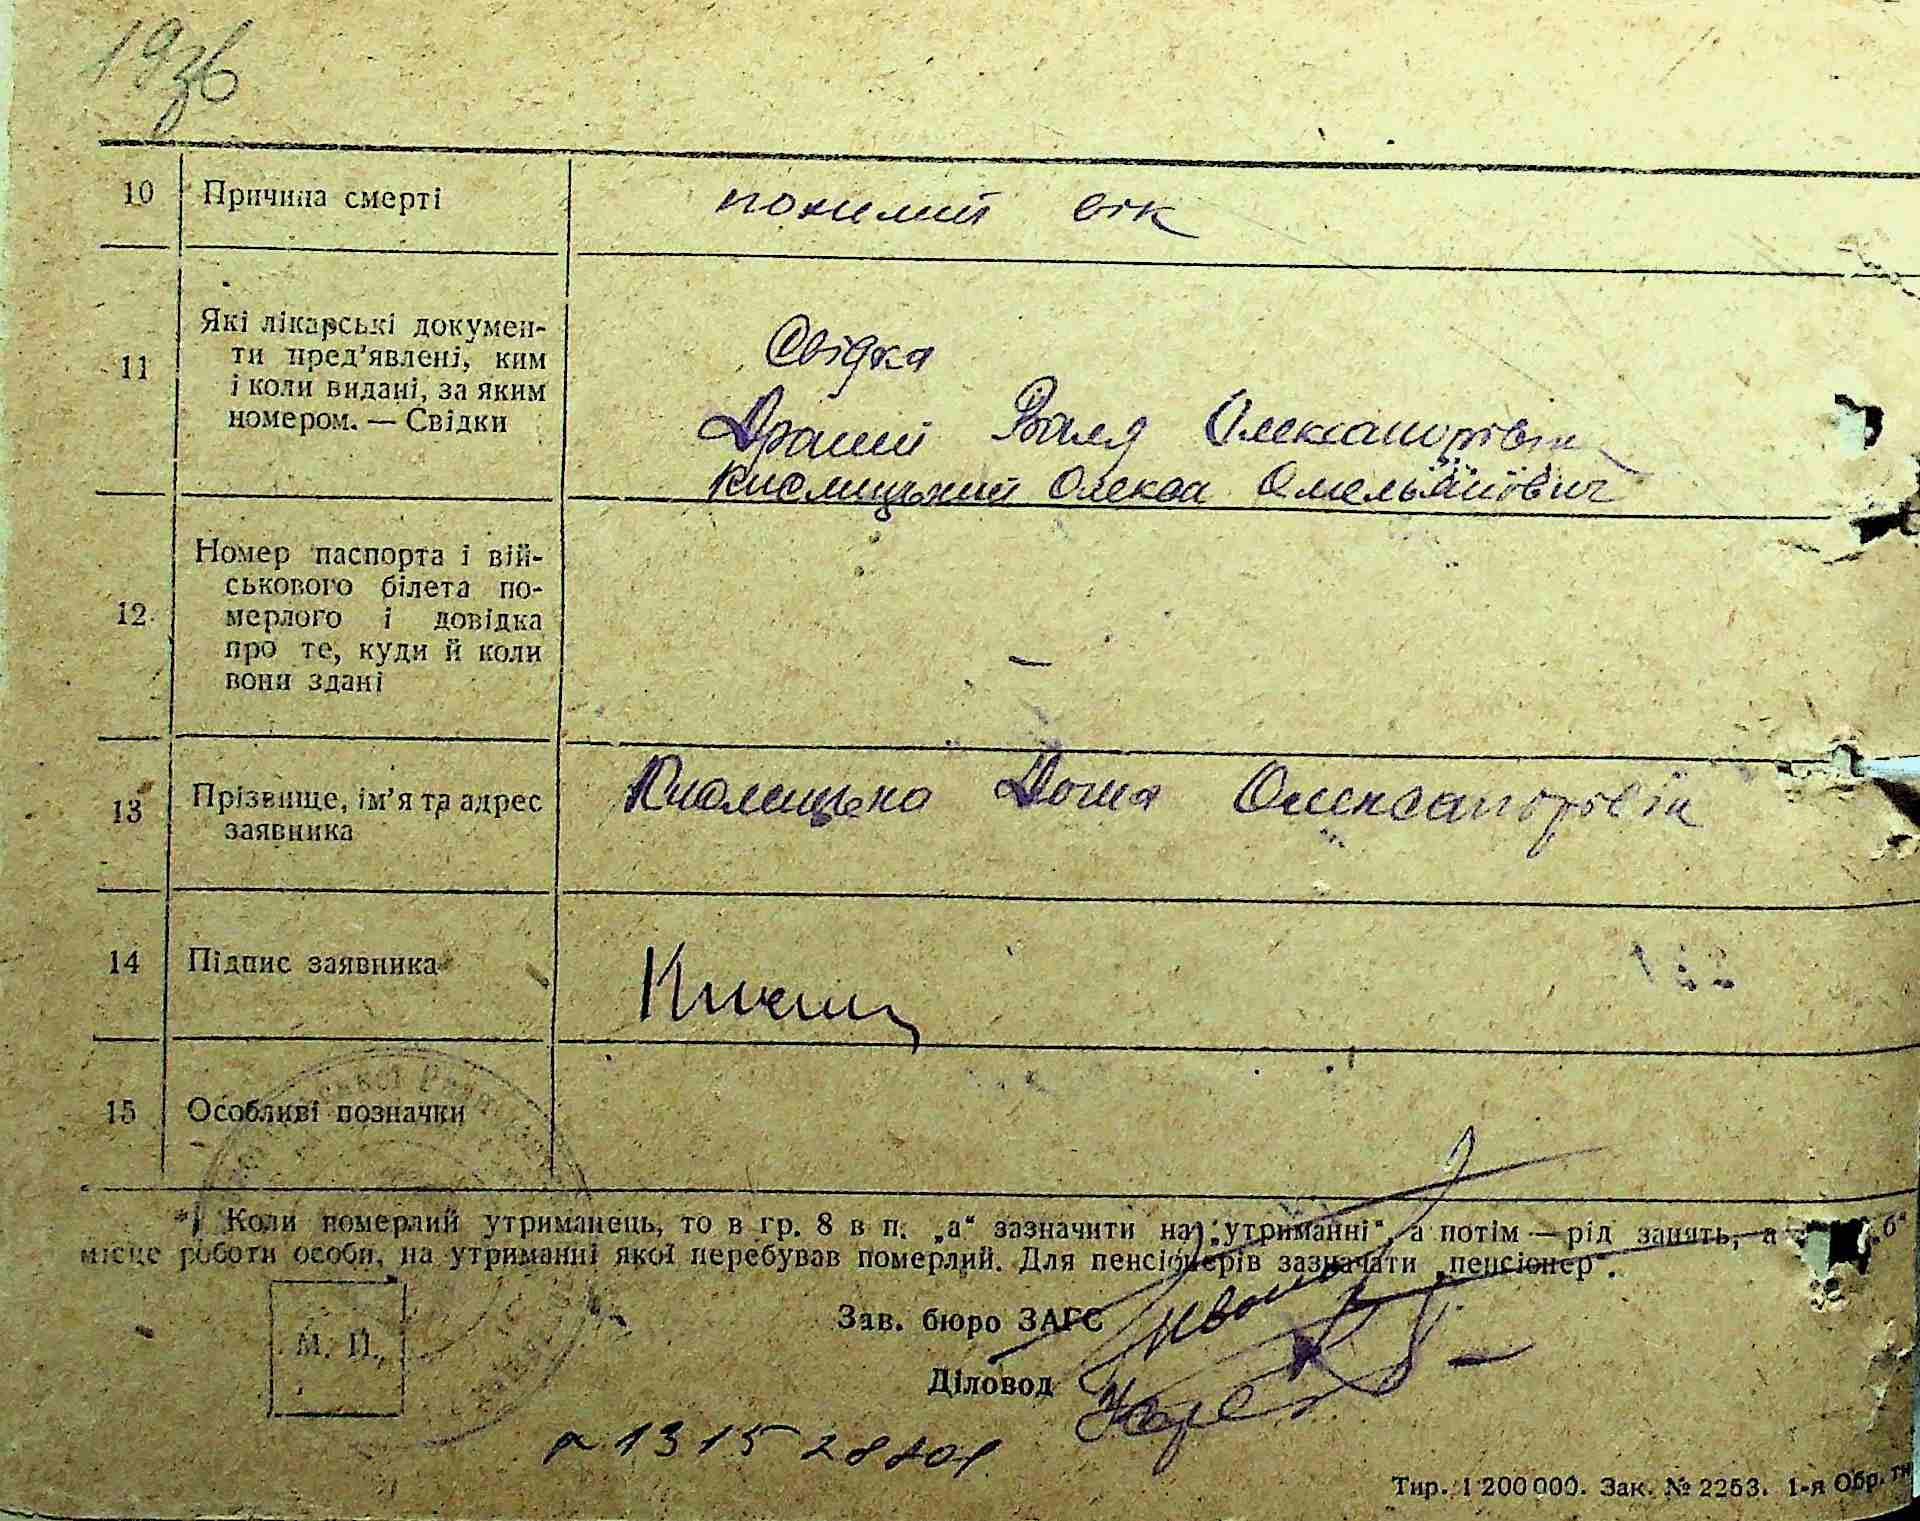 1936
10 Причина смерті похилий вік
11 Які лікарські докумен-
ти пред'явлені, ким
і коли видані, за яким
номером. — Свідки
Свідка
Олександрівна
Кислицький Олекса Омельянович
12 Номер паспорта і вій-
ськового білета по-
мерлого і довідка
про те, куди й коли
вони здані
—
13 Прізвище, ім'я та адрес
заявника
Кислицька Олександрівн
14 Підпис заявника
15 Особливі позначки
*) Коли померлий утриманець, то в гр. 8 в п. „а“ зазначити на „утриманні“, а потім — рід занять, а „б“
місце роботи особи, на утриманні якої перебував померлий. Для пенсіонерів зазначати „пенсіонер“.
Зав. бюро ЗАГС
М. П.
Діловод
1315
Тир. 1 200 000. Зак. № 2253. 1-я Обр. ти